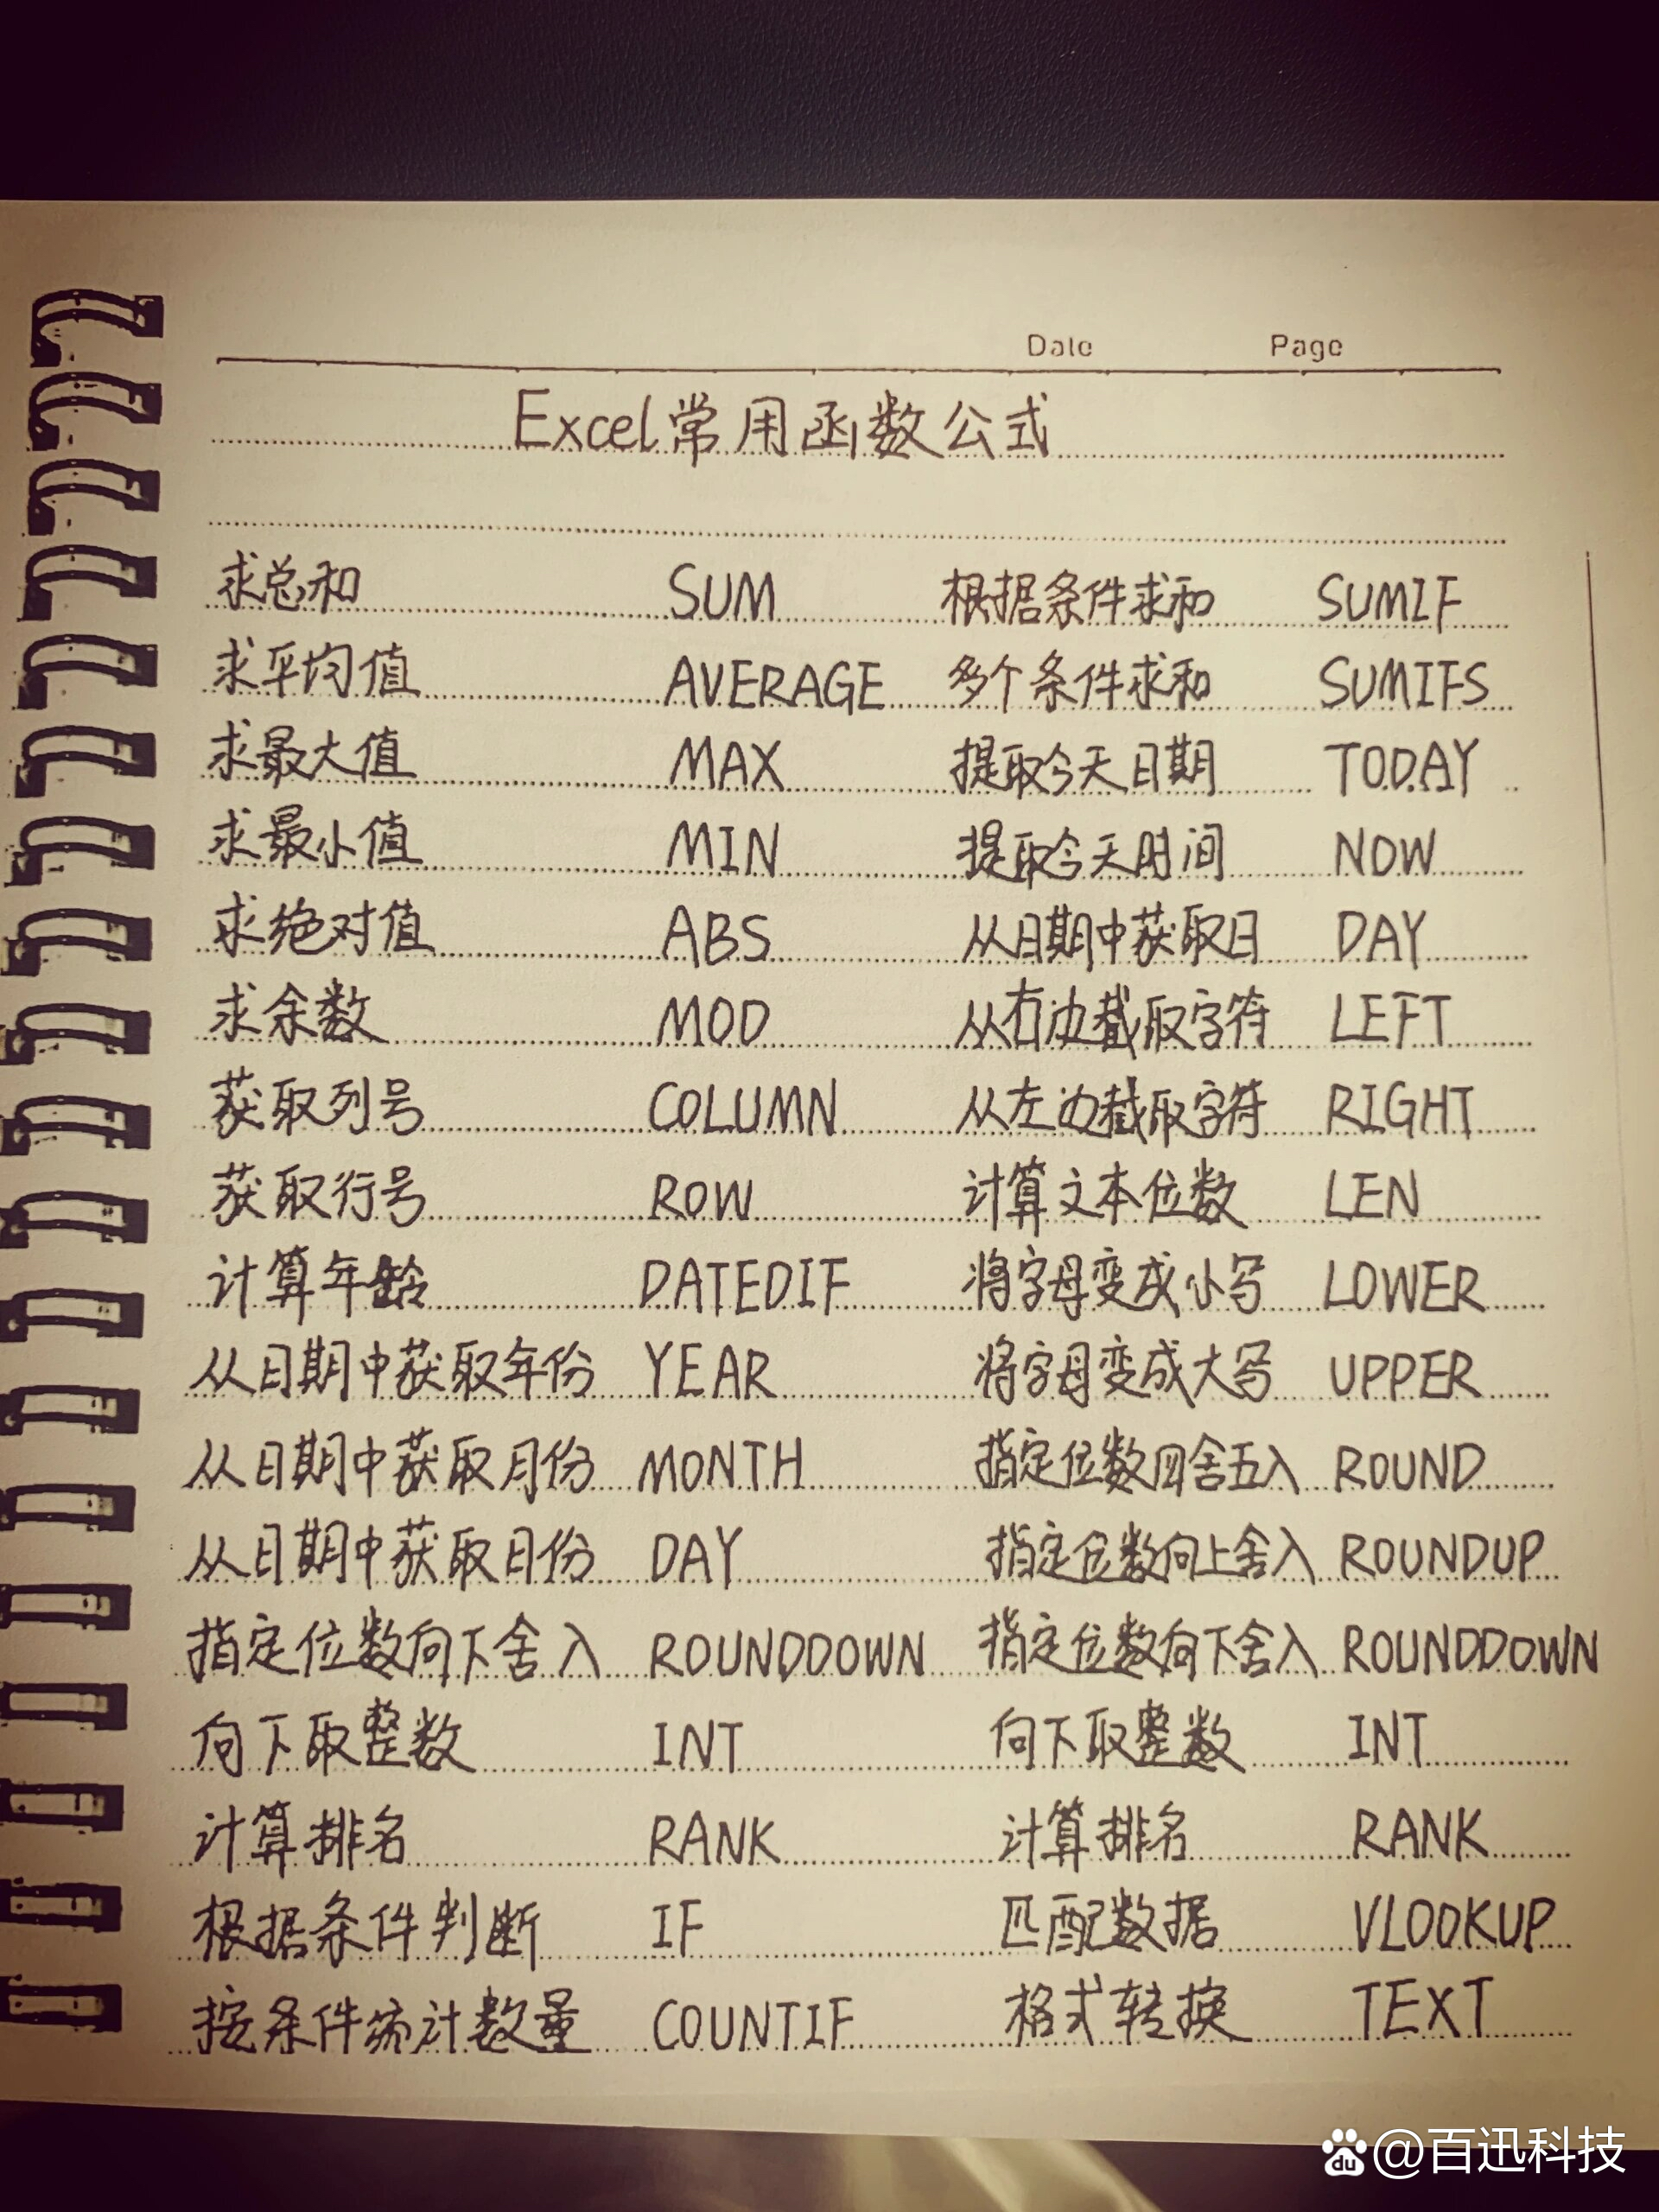 Date Page
Excel常用函数公式
求总和 SUM 根据条件求和 SUMIF
求平均值 AVERAGE 多个条件求和 SUMIFS
求最大值 MAX 提取今天日期 TODAY
求最小值 MIN 提取今天时间 NOW
求绝对值 ABS 从日期中获取日 DAY
求余数 MOD 从右边截取字符 LEFT
获取列号 COLUMN 从左边截取字符 RIGHT
获取行号 ROW 计算文本位数 LEN
计算年龄 DATEDIF 将字母变成小写 LOWER
从日期中获取年份 YEAR 将字母变成大写 UPPER
从日期中获取月份 MONTH 指定位数四舍五入 ROUND
从日期中获取日份 DAY 指定位数向上舍入 ROUNDUP
指定位数向下舍入 ROUNDDOWN 指定位数向下舍入 ROUNDDOWN
向下取整数 INT 向下取整数 INT
计算排名 RANK 计算排名 RANK
根据条件判断 IF 匹配数据 VLOOKUP
按条件统计数量 COUNTIF 格式转换 TEXT
du @百迅科技